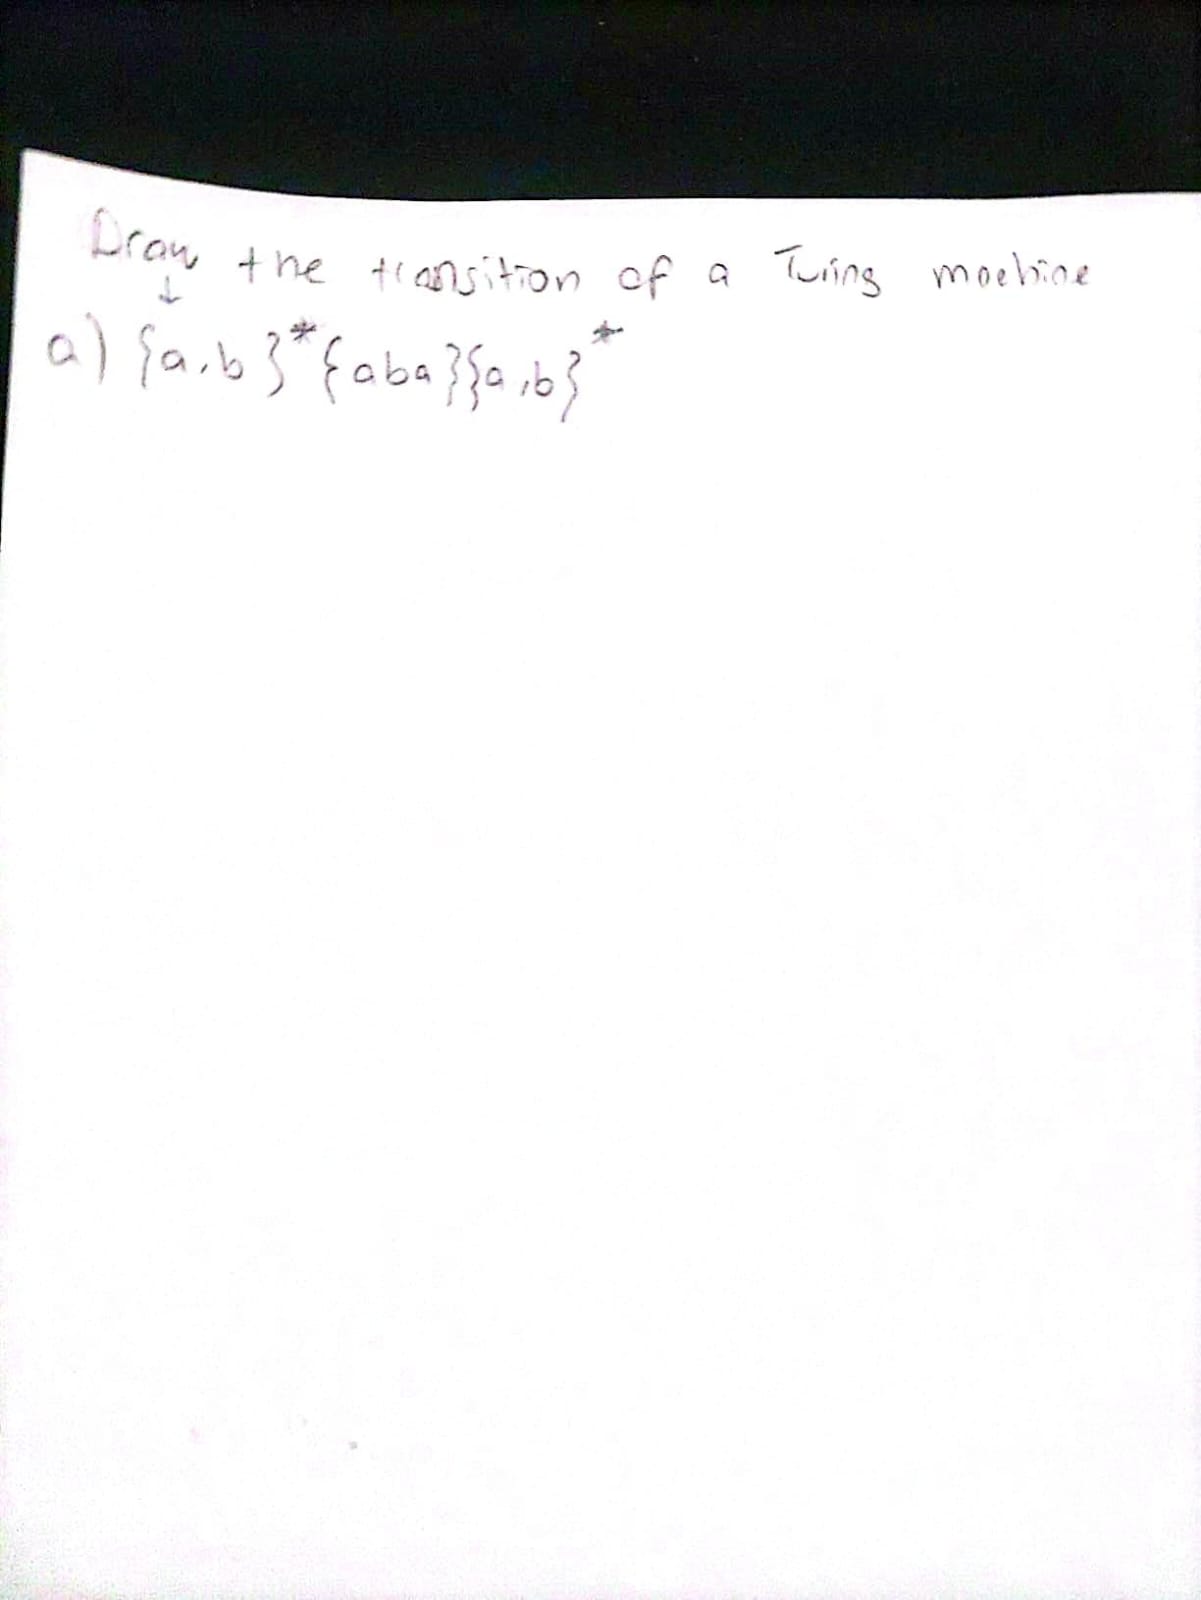 Draw the transition of a Turing machine
a) {a,b}*{aba}{a,b}*